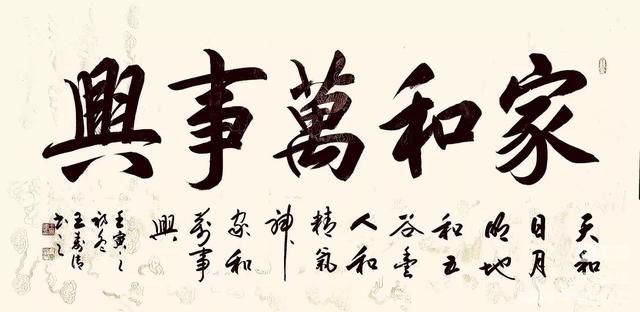 家和萬事興
天和
日月
明地
和五
谷豐
人和
精氣
神
家和
萬事
興
壬寅之
初冬